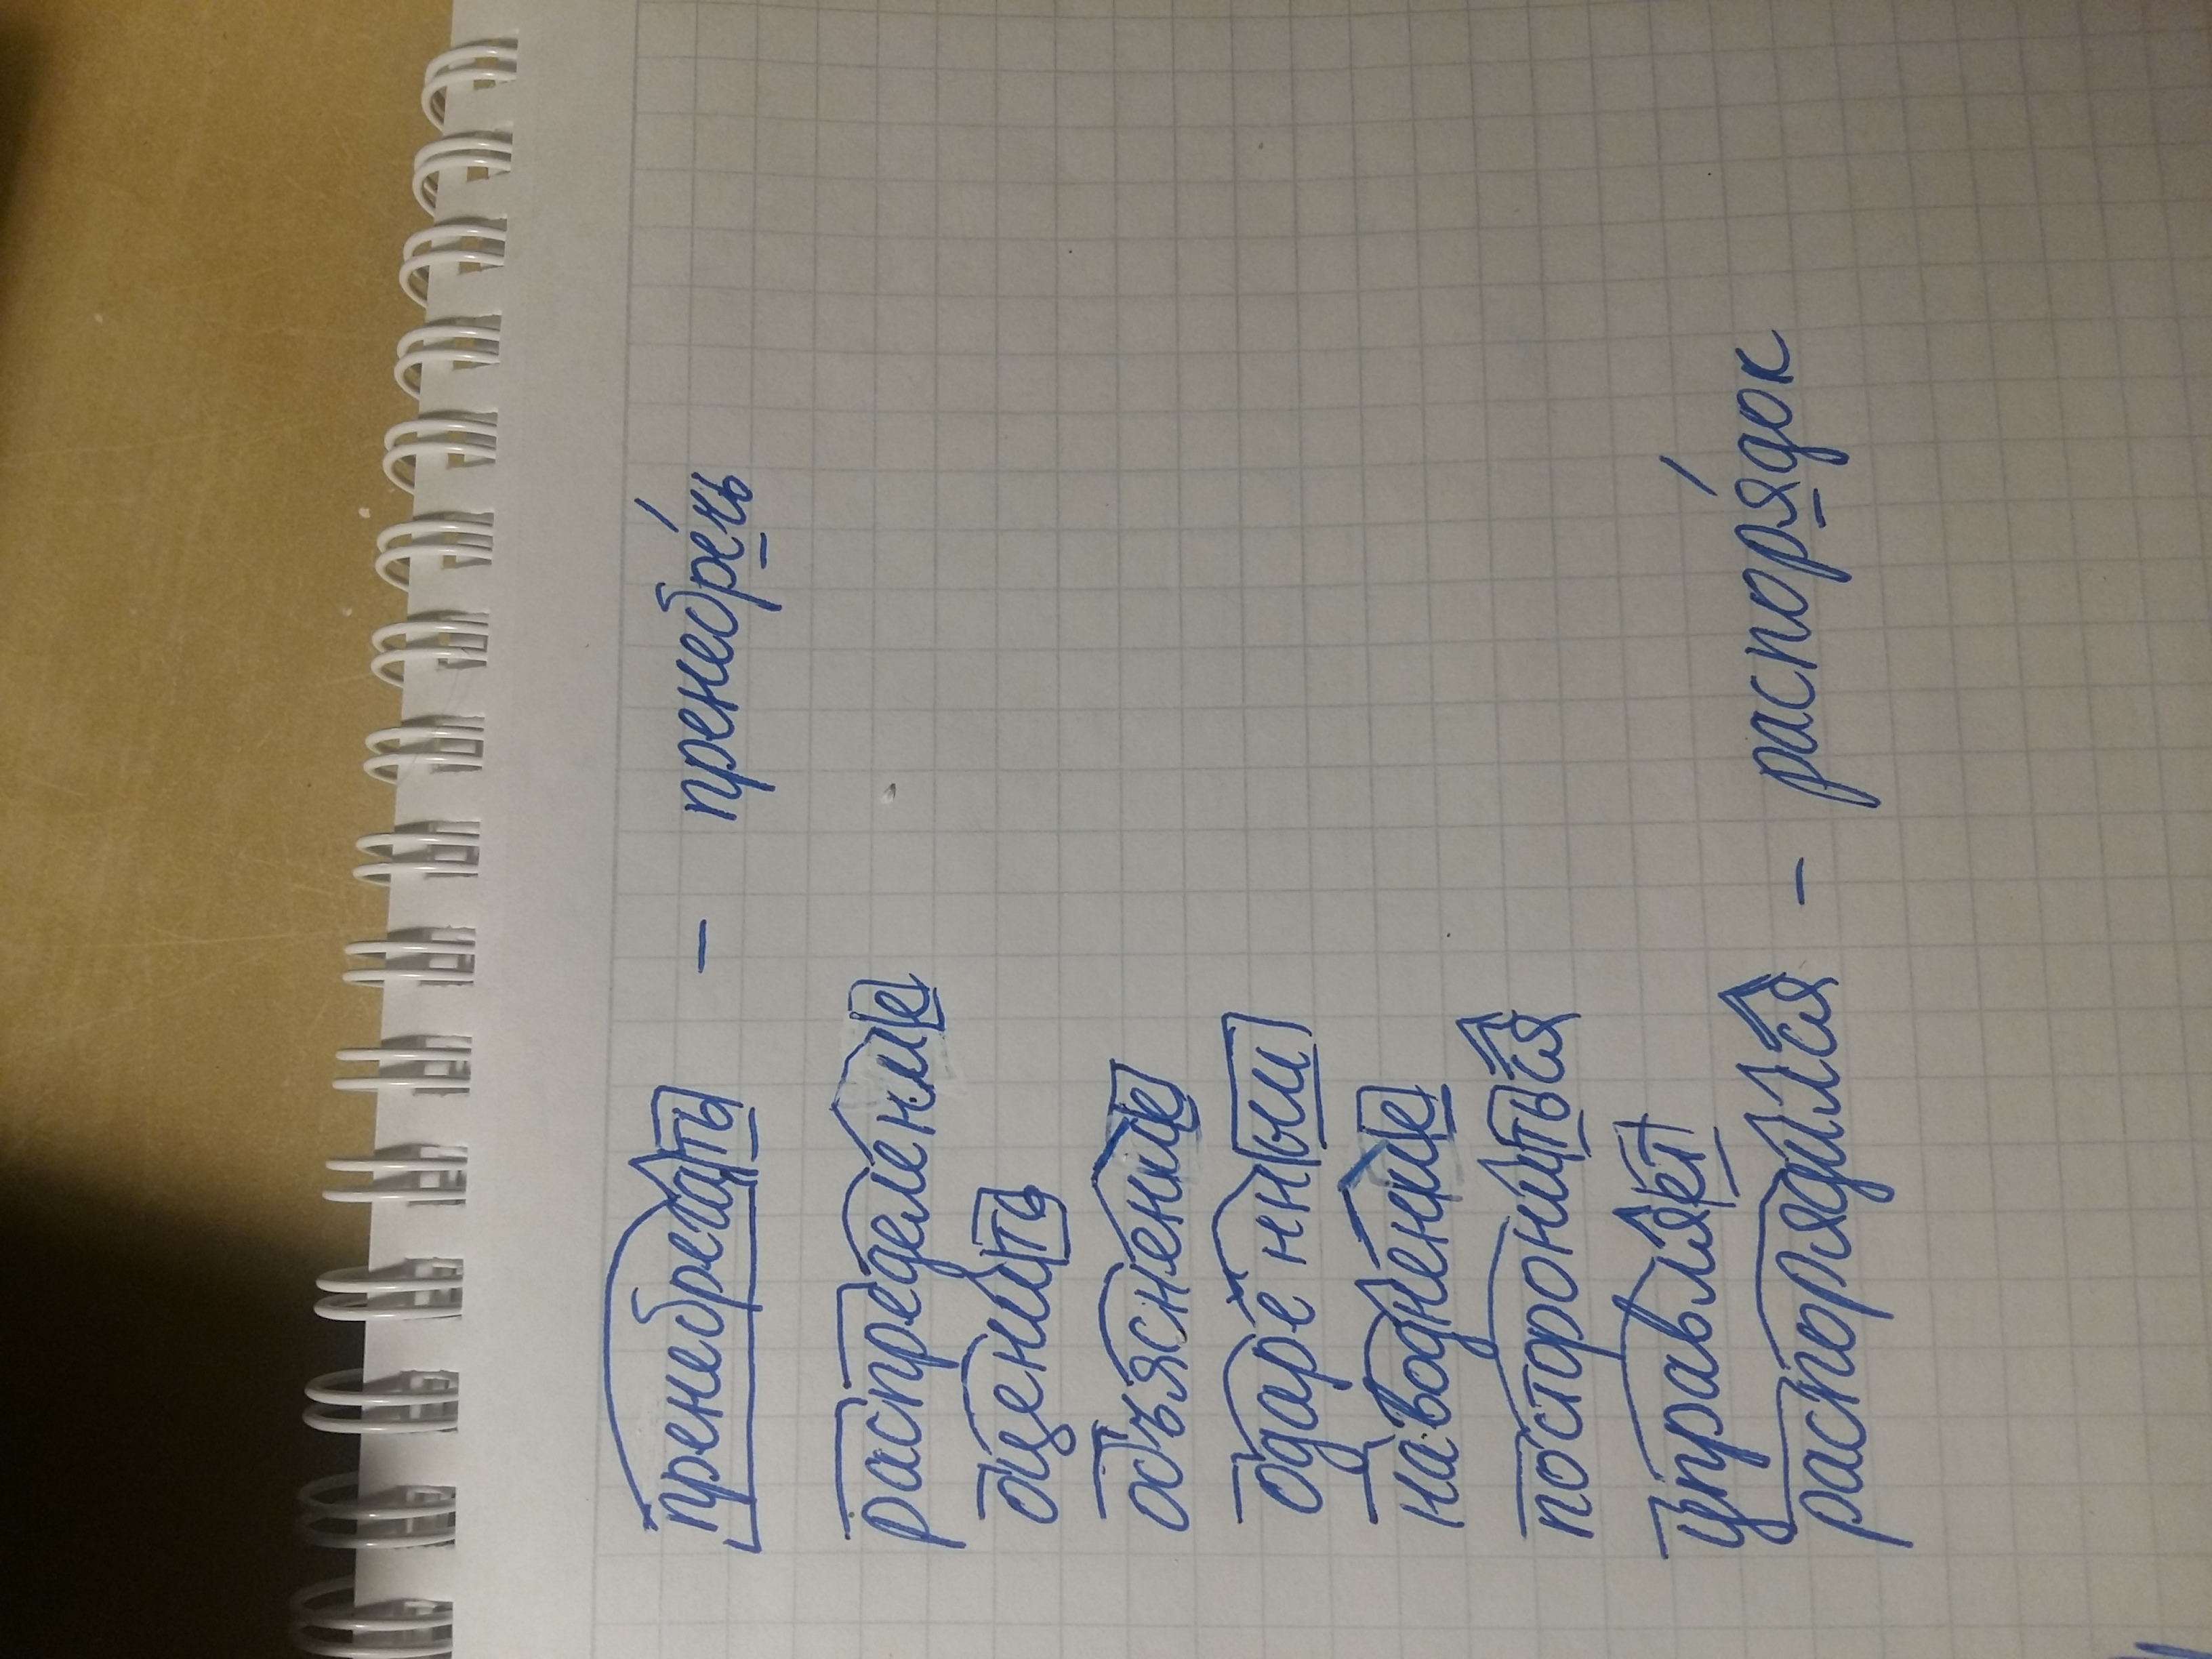 пренебрегать – пренебре́чь
распределение
оценить
объяснение
одаренный
наводнение
посторониться
управляет
распорядился – распоря́док